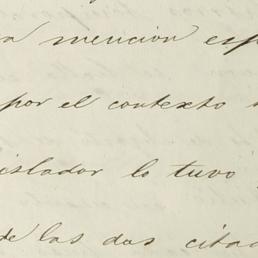 a mención esp
por el contexto
islador lo tuvo
de las dos citad